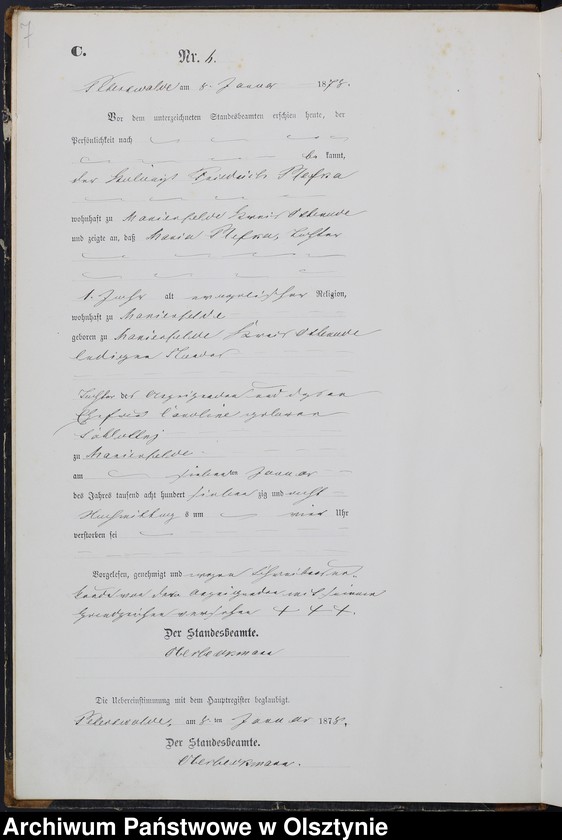 7
C.
Nr. 4.
Peterswalde am 8. Januar 1878.
Vor dem unterzeichneten Standesbeamten erschien heute, der
Persönlichkeit nach
be kannt,
der Friedrich Plefka
wohnhaft zu Marienfelde Kreis Osterode
und zeigte an, daß Maria Plefka, Tochter
1. Jahr alt evangelischer Religion,
wohnhaft zu Marienfelde
geboren zu Marienfelde Kreis Osterode
ledigen Standes
Tochter des Anzeigenden und dessen
Ehefrau Caroline geborenen
zu Marienfelde
am sieben ten Januar
des Jahres tausend acht hundert sieben zig und acht
Nachmittags um vier Uhr
verstorben sei
Vorgelesen, genehmigt und wegen Schreibensun-
kunde von dem Anzeigenden mit seinem
Handzeichen versehen + + +.
Der Standesbeamte.
Oberbeckmann
Die Uebereinstimmung mit dem Hauptregister beglaubigt.
Peterswalde, am 8. ten Januar 1878.
Der Standesbeamte.
Oberbeckmann.
Archiwum Państwowe w Olsztynie